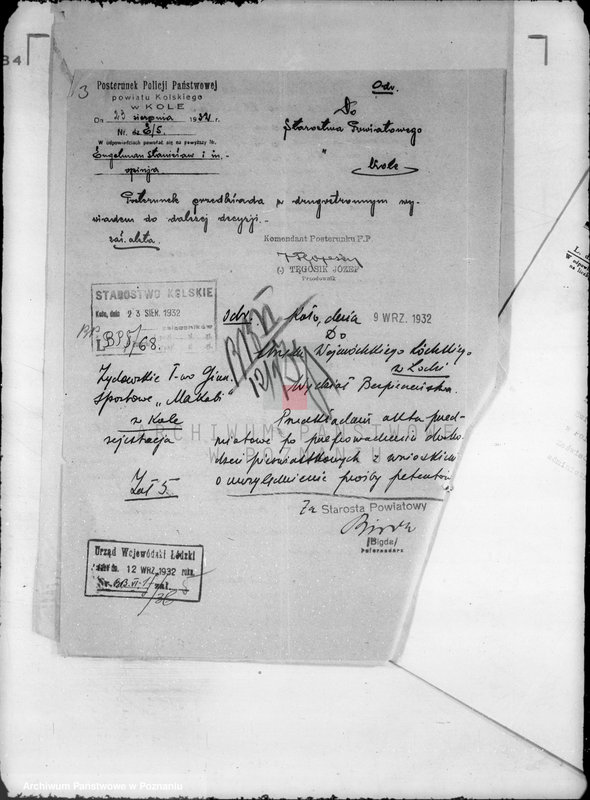 3
Posterunek Policji Państwowej
powiatu Kolskiego
W KOLE
Dn 23 sierpnia 1932 r.
Nr. dz. 2/5.
W odpowiedziach powołać się na powyższy Nr.
Engelman Stanisław i in-
opinja
Odr.
Do
Starostwa Powiatowego
w
Kole
Posterunek przedkłada z drugostronnym wy-
wiadem do dalszej decyzji.-
zał. akta.
Komendant Posterunku P.P
(-) TĘGOSIK JÓZEF
Przodownik
STAROSTWO KOLSKIE
Koło, dnia 23 SIER. 1932
L. BP5/68.
Żydowskie T-wo Gimn.
Sportowe „Makabi"
w Kole
rejestracja
Zał 5.
odr. Koło, dnia 9 WRZ. 1932
Do
Urzędu Wojewódzkiego Łódzkiego
w Łodzi
Wydział Bezpieczeństwa.
12/9
Przedkładam akta przed-
miotowe po przeprowadzeniu docho-
dzeń z wnioskiem
o uwzględnienie prośby petentów
Za Starosta Powiatowy
/Bigda/
Referendarz
Urząd Wojewódzki Łódzki
12 WRZ. 1932
zał. 5
ARCHIWUM PAŃSTWOWE
W POZNANIU
Archiwum Państwowe w Poznaniu